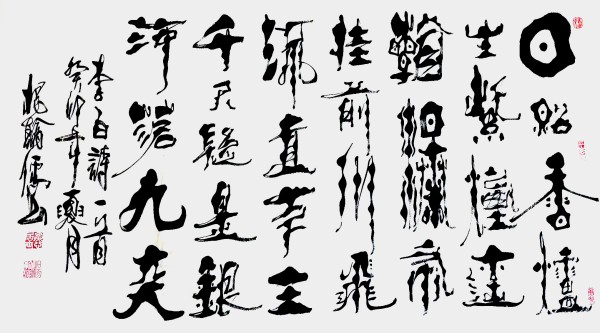 日照香爐
生紫煙遙
看瀑布
挂前川飛
流直下三
千尺疑是銀
河落九天
李白詩一首
癸卯年夏月